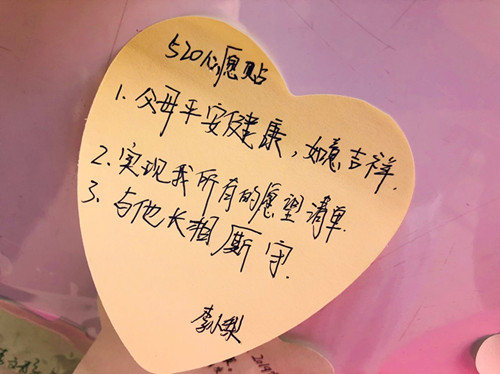 520心愿贴
1. 父母平安健康，如意吉祥.
2. 实现我所有的愿望清单.
3. 与他长相厮守.
李小梨